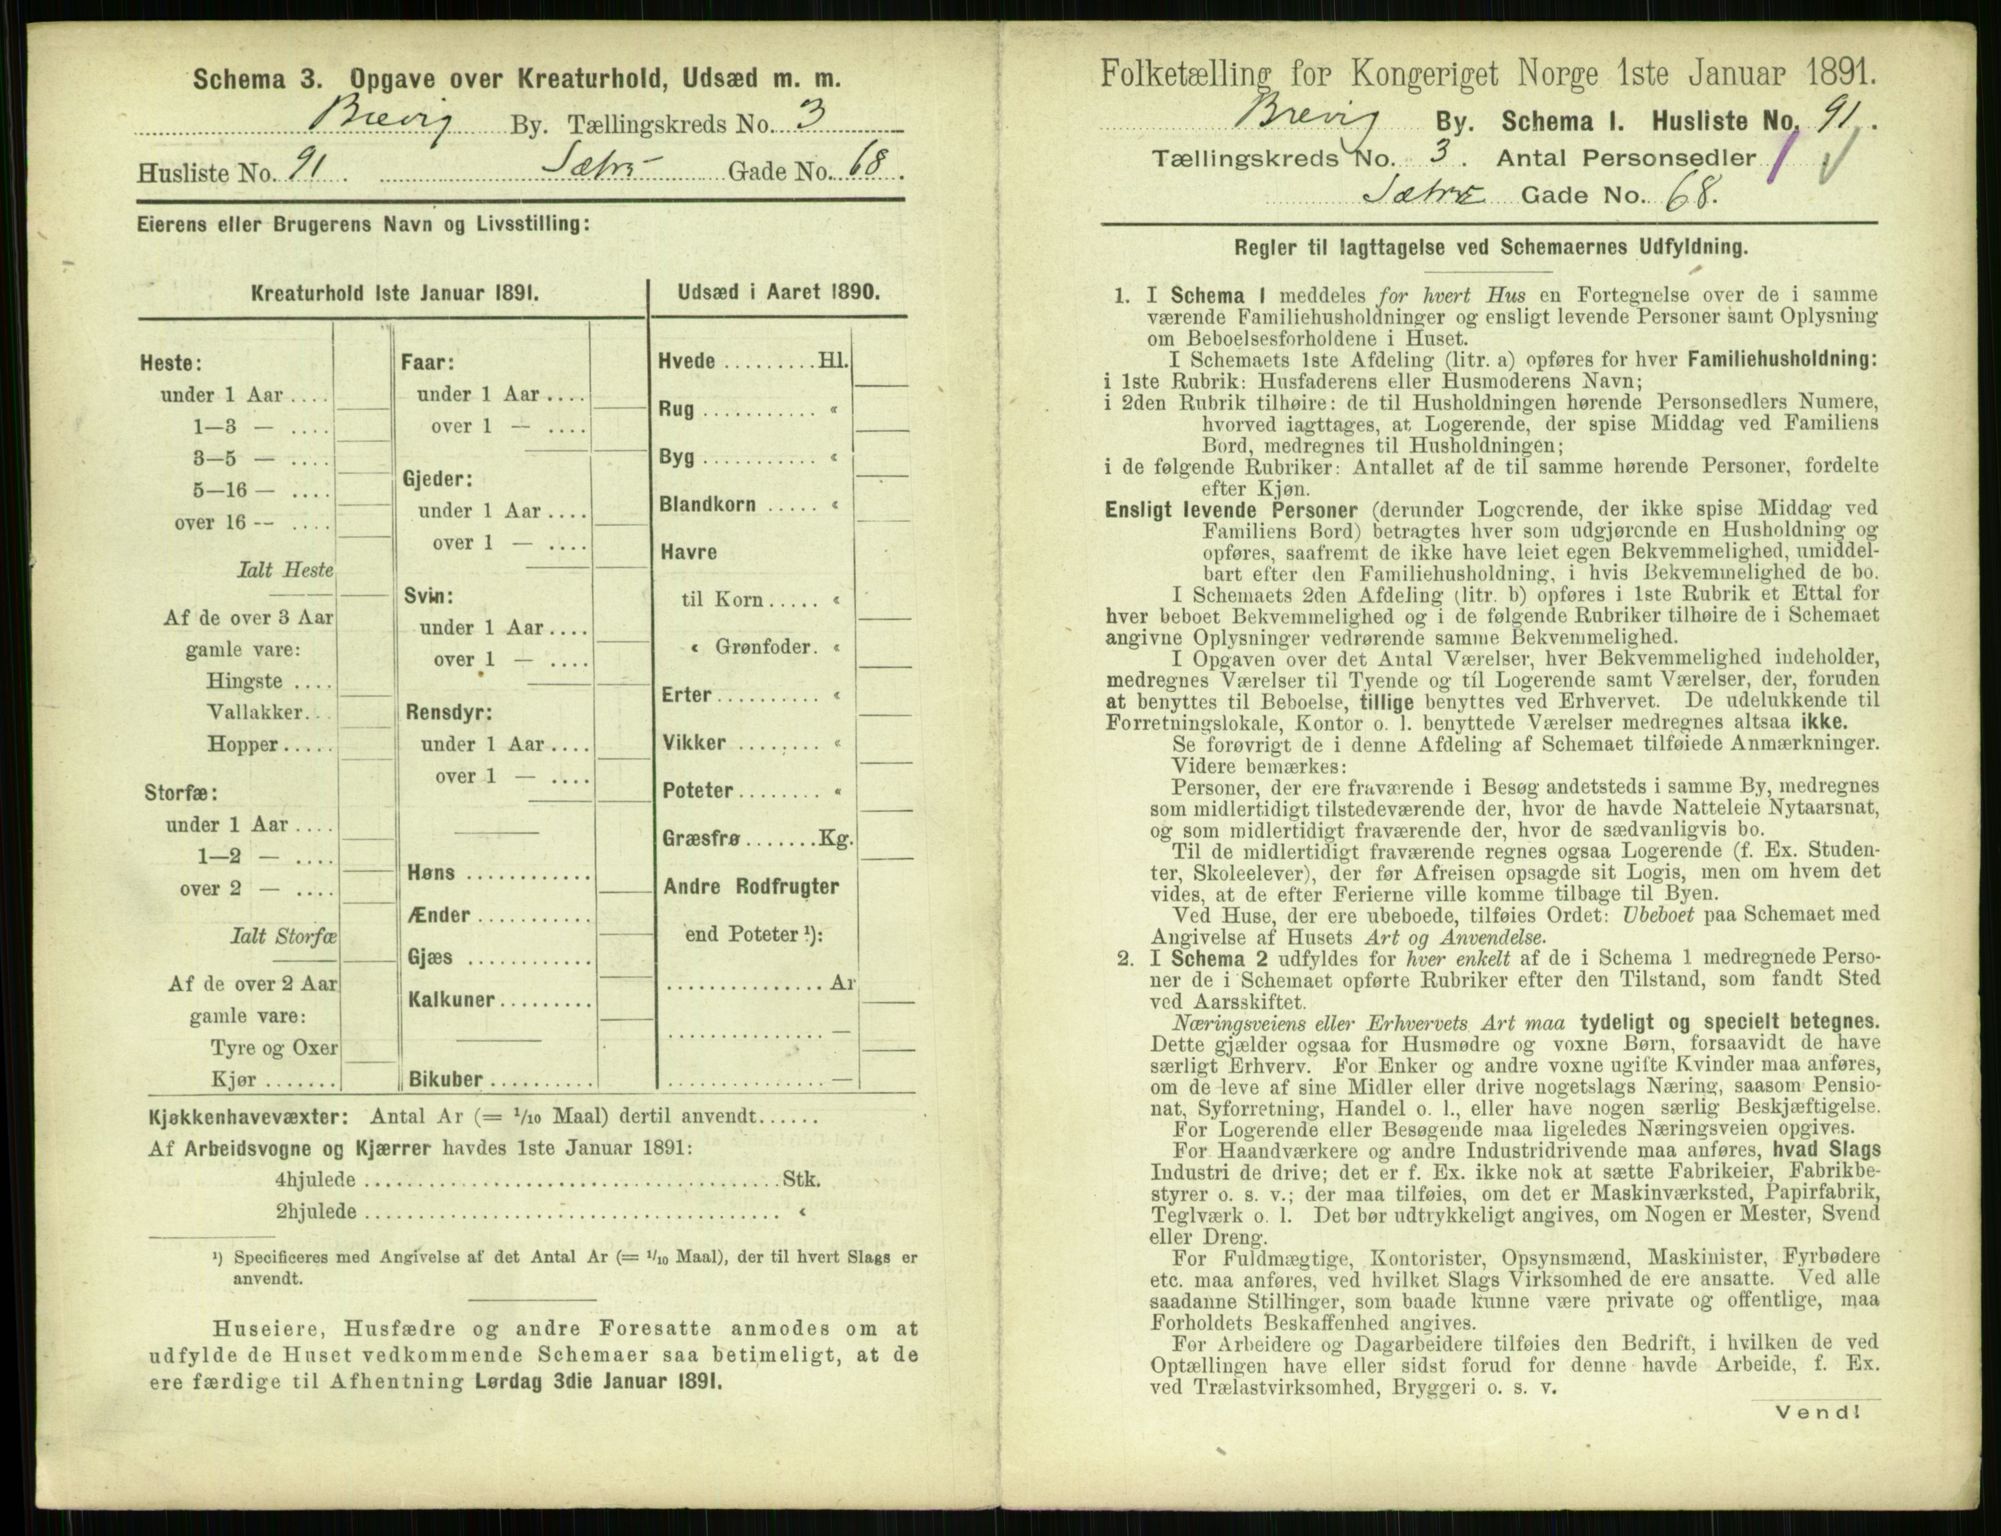 Schema 3. Opgave over Kreaturhold, Udsæd m. m.
Brevig By. Tællingskreds No. 3
Husliste No. 91. Sætre Gade No. 68.
Eierens eller Brugerens Navn og Livsstilling:
Kreaturhold 1ste Januar 1891.
Heste:
under 1 Aar ....
1—3 — ....
3—5 — ....
5—16 — ....
over 16 -- ....
Ialt Heste
Af de over 3 Aar
gamle vare:
Hingste ....
Vallakker...
Hopper.....
Storfæ:
under 1 Aar ....
1—2 — ....
over 2 — ....
Ialt Storfæ
Af de over 2 Aar
gamle vare:
Tyre og Oxer
Kjør.......
Faar:
under 1 Aar ....
over 1 — ....
Gjeder:
under 1 Aar ....
over 1 — ....
Svin:
under 1 Aar....
over 1 — ....
Rensdyr:
under 1 Aar....
over 1 — ....
Høns ............
Ænder...........
Gjæs ............
Kalkuner.........
Bikuber..........
Udsæd i Aaret 1890.
Hvede .........Hl.
Rug ........... «
Byg ........... «
Blandkorn ..... «
Havre
til Korn..... «
« Grønfoder. «
Erter.......... «
Vikker ........ «
Poteter........ «
Græsfrø.......Kg.
Andre Rodfrugter
end Poteter ¹):
...............Ar
............... —
...............—
Kjøkkenhavevæxter: Antal Ar (= 1/10 Maal) dertil anvendt......
Af Arbeidsvogne og Kjærrer havdes 1ste Januar 1891:
4hjulede .......................................Stk.
2hjulede ....................................... «
¹) Specificeres med Angivelse af det Antal Ar (= 1/10 Maal), der til hvert Slags er
anvendt.
Huseiere, Husfædre og andre Foresatte anmodes om at
udfylde de Huset vedkommende Schemaer saa betimeligt, at de
ere færdige til Afhentning Lørdag 3die Januar 1891.
Folketælling for Kongeriget Norge 1ste Januar 1891.
Brevig By. Schema 1. Husliste No. 91.
Tællingskreds No. 3. Antal Personsedler 1 √
Sætre Gade No. 68.
Regler til Iagttagelse ved Schemaernes Udfyldning.
1. I Schema 1 meddeles for hvert Hus en Fortegnelse over de i samme
værende Familiehusholdninger og ensligt levende Personer samt Oplysning
om Beboelsesforholdene i Huset.
I Schemaets 1ste Afdeling (litr. a) opføres for hver Familiehusholdning:
i 1ste Rubrik: Husfaderens eller Husmoderens Navn;
i 2den Rubrik tilhøire: de til Husholdningen hørende Personsedlers Numere,
hvorved iagttages, at Logerende, der spise Middag ved Familiens
Bord, medregnes til Husholdningen;
i de følgende Rubriker: Antallet af de til samme hørende Personer, fordelte
efter Kjøn.
Ensligt levende Personer (derunder Logerende, der ikke spise Middag ved
Familiens Bord) betragtes hver som udgjørende en Husholdning og
opføres, saafremt de ikke have leiet egen Bekvemmelighed, umiddel-
bart efter den Familiehusholdning, i hvis Bekvemmelighed de bo.
I Schemaets 2den Afdeling (litr. b) opføres i 1ste Rubrik et Ettal for
hver beboet Bekvemmelighed og i de følgende Rubriker tilhøire de i Schemaet
angivne Oplysninger vedrørende samme Bekvemmelighed.
I Opgaven over det Antal Værelser, hver Bekvemmelighed indeholder,
medregnes Værelser til Tyende og til Logerende samt Værelser, der, foruden
at benyttes til Beboelse, tillige benyttes ved Erhvervet. De udelukkende til
Forretningslokale, Kontor o. l. benyttede Værelser medregnes altsaa ikke.
Se forøvrigt de i denne Afdeling af Schemaet tilføiede Anmærkninger.
Videre bemærkes:
Personer, der ere fraværende i Besøg andetsteds i samme By, medregnes
som midlertidigt tilstedeværende der, hvor de havde Natteleie Nytaarsnat,
og som midlertidigt fraværende der, hvor de sædvanligvis bo.
Til de midlertidigt fraværende regnes ogsaa Logerende (f. Ex. Studen-
ter, Skoleelever), der før Afreisen opsagde sit Logis, men om hvem det
vides, at de efter Ferierne ville komme tilbage til Byen.
Ved Huse, der ere ubeboede, tilføies Ordet: Ubeboet paa Schemaet med
Angivelse af Husets Art og Anvendelse.
2. I Schema 2 udfyldes for hver enkelt af de i Schema 1 medregnede Perso-
ner de i Schemaet opførte Rubriker efter den Tilstand, som fandt Sted
ved Aarsskiftet.
Næringsveiens eller Erhvervets Art maa tydeligt og specielt betegnes.
Dette gjælder ogsaa for Husmødre og voxne Børn, forsaavidt de have
særligt Erhverv. For Enker og andre voxne ugifte Kvinder maa anføres,
om de leve af sine Midler eller drive nogetslags Næring, saasom Pensio-
nat, Syforretning, Handel o. l., eller have nogen særlig Beskjæftigelse.
For Logerende eller Besøgende maa ligeledes Næringsveien opgives.
For Haandværkere og andre Industridrivende maa anføres, hvad Slags
Industri de drive; det er f. Ex. ikke nok at sætte Fabrikeier, Fabrikbe-
styrer o. s. v.; der maa tilføies, om det er Maskinværksted, Papirfabrik,
Teglværk o. l. Det bør udtrykkeligt angives, om Nogen er Mester, Svend
eller Dreng.
For Fuldmægtige, Kontorister, Opsynsmænd, Maskinister, Fyrbødere
etc. maa anføres, ved hvilket Slags Virksomhed de ere ansatte. Ved alle
saadanne Stillinger, som baade kunne være private og offentlige, maa
Forholdets Beskaffenhed angives.
For Arbeidere og Dagarbeidere tilføies den Bedrift, i hvilken de ved
Optællingen have eller sidst forud for denne havde Arbeide, f. Ex.
ved Trælastvirksomhed, Bryggeri o. s. v.
Vend!